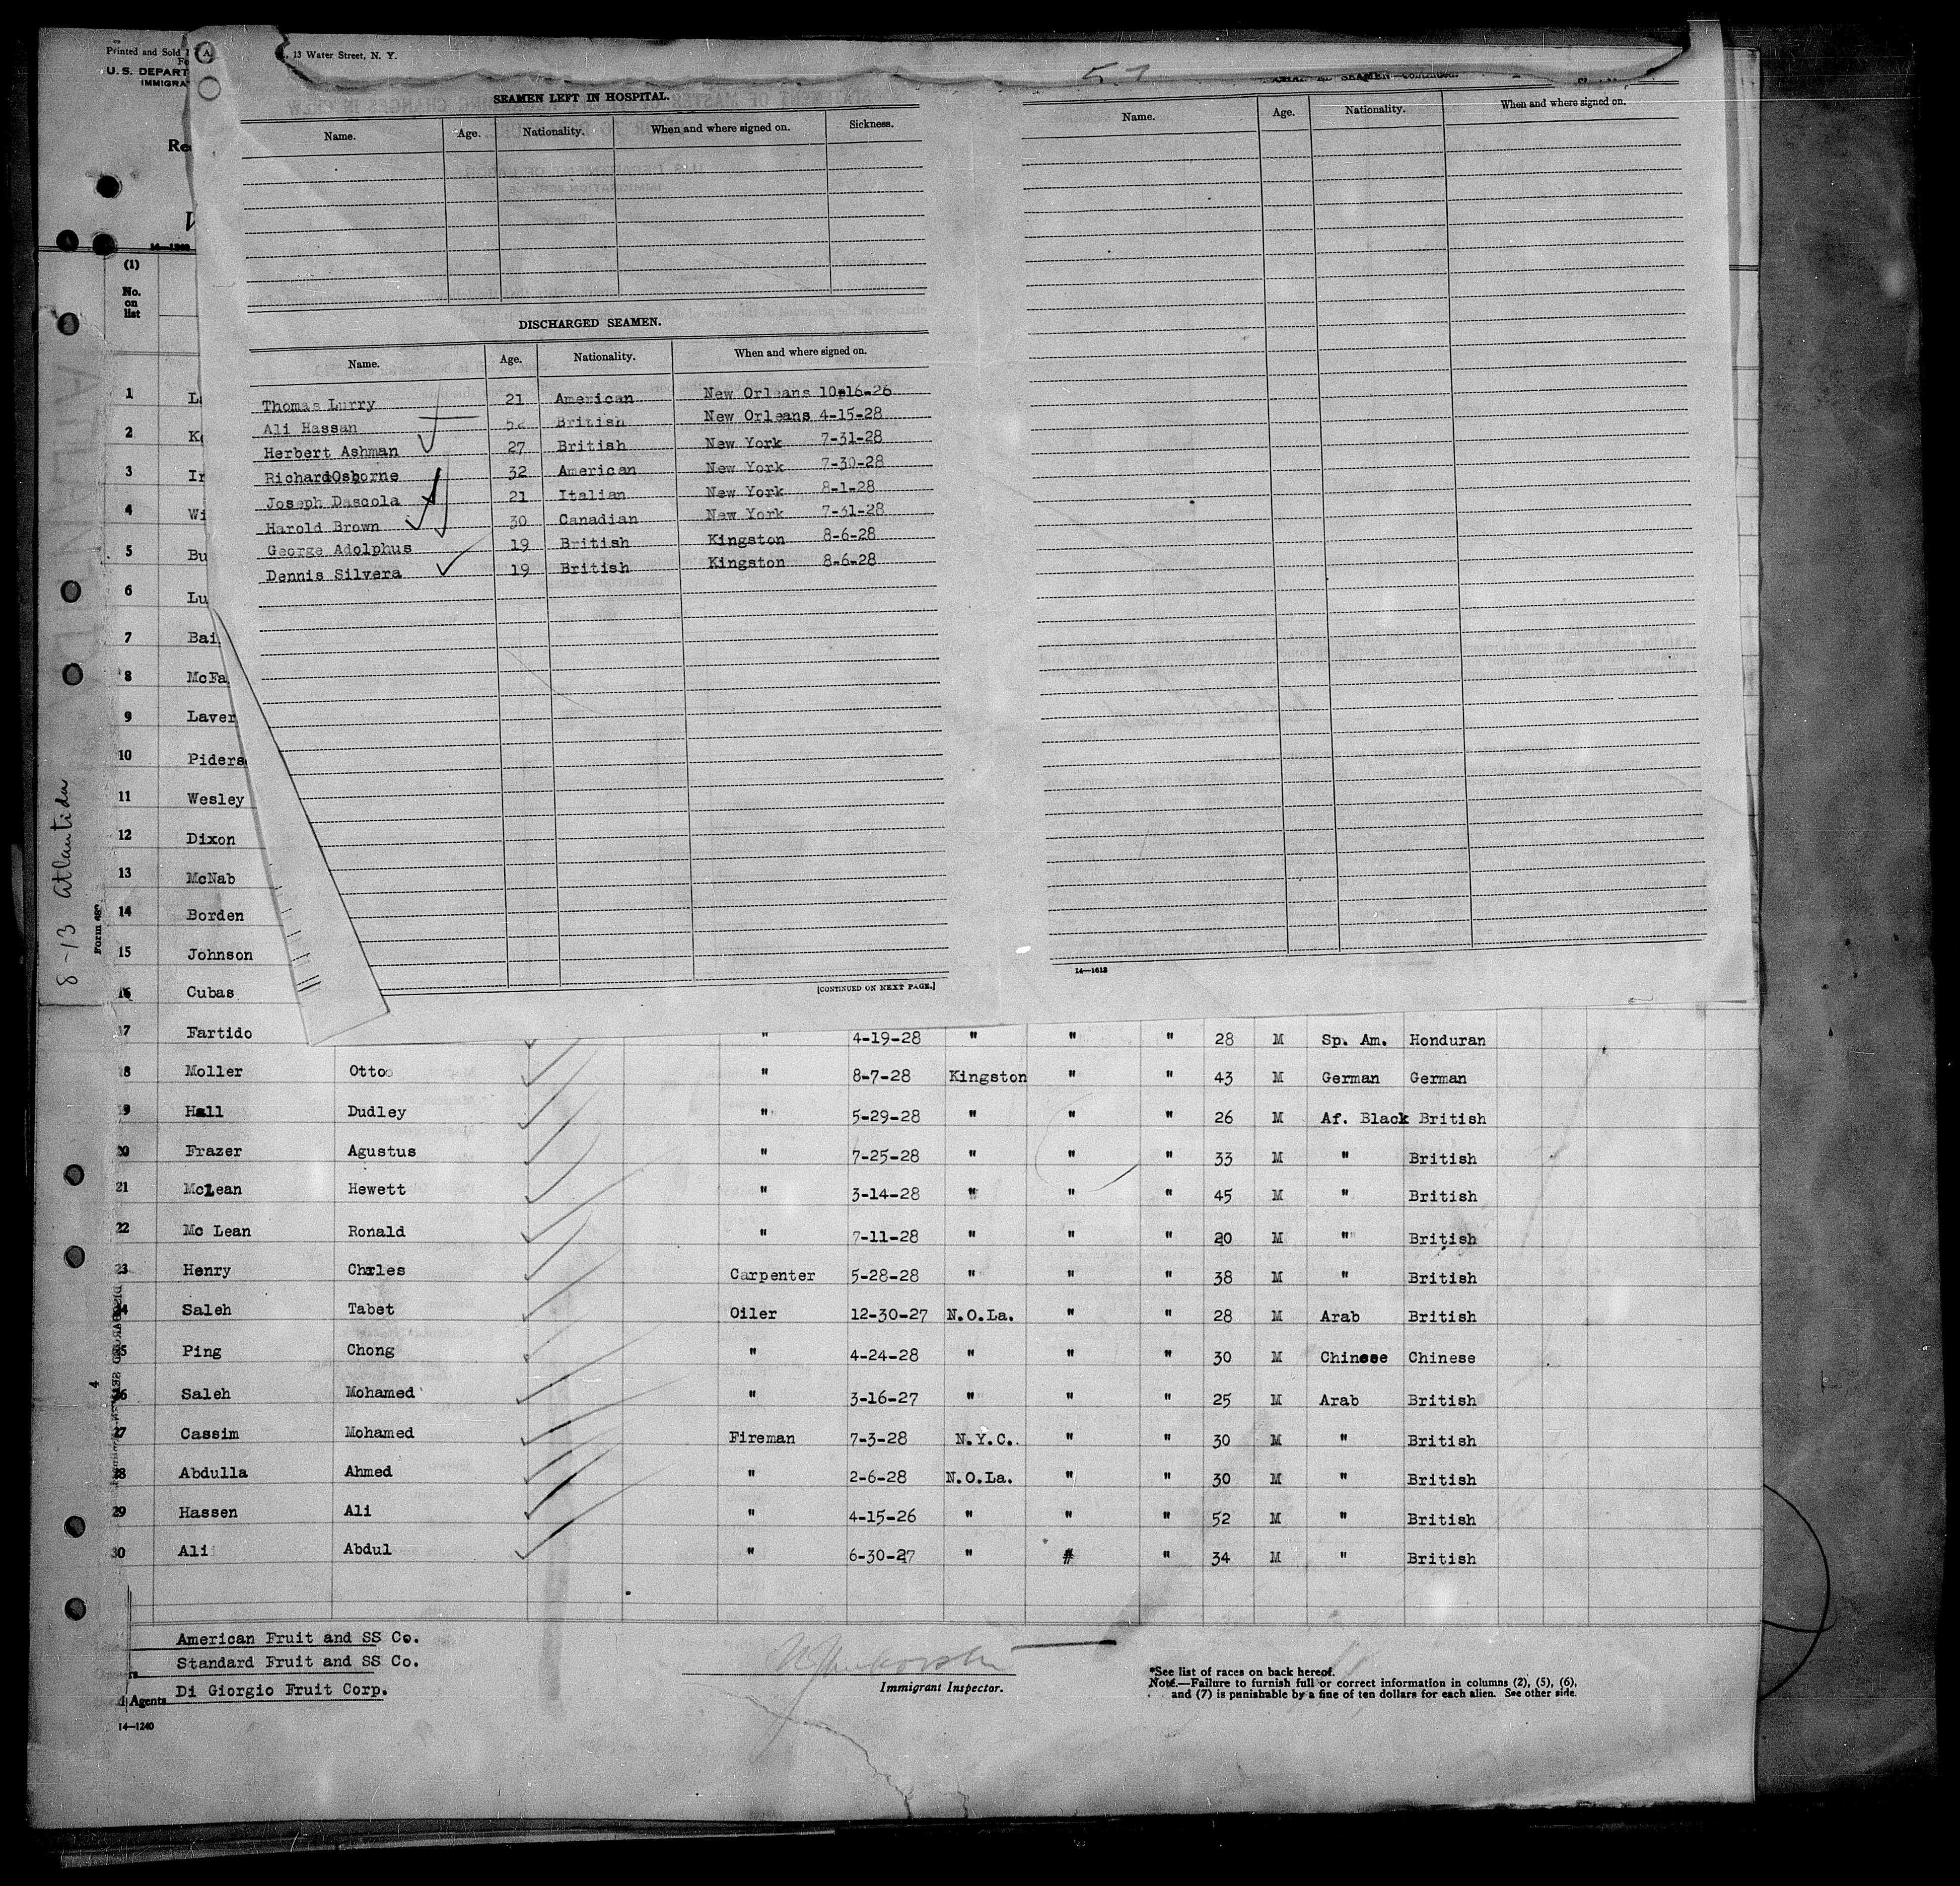 Printed and Sold
, 13 Water Street, N. Y.
U. S. DEPART
IMMIGRA
57
SEAMEN—Continued.
SEAMEN LEFT IN HOSPITAL.
Name. Age. Nationality. When and where signed on. Sickness.
Name. Age. Nationality. When and where signed on.
14—1240
(1)
No.
on
list
DISCHARGED SEAMEN.
Name. Age. Nationality. When and where signed on.
Thomas Lurry 21 American New Orleans 10-16-26
Ali Hassan 52 British New Orleans 4-15-28
Herbert Ashman 27 British New York 7-31-28
RichardOsborne 32 American New York 7-30-28
Joseph Dascola 21 Italian New York 8-1-28
Harold Brown 30 Canadian New York 7-31-28
George Adolphus 19 British Kingston 8-6-28
Dennis Silvera 19 British Kingston 8-6-28
[CONTINUED ON NEXT PAGE.]
14—1613
1 L
2 K
3 Ir
4 Wi
5 Bu
6 Lu
7 Bai
8 McFa
9 Laver
10 Piders
11 Wesley
12 Dixon
13 McNab
14 Borden
15 Johnson
16 Cubas
8-13 Atlantida
Form 689
17 Fartido " 4-19-28 " " " 28 M Sp. Am. Honduran
8 Moller Otto " 8-7-28 Kingston " " 43 M German German
9 Hall Dudley " 5-29-28 " " " 26 M Af. Black British
20 Frazer Agustus " 7-25-28 " " " 33 M " British
21 McLean Hewett " 3-14-28 " " " 45 M " British
22 Mc Lean Ronald " 7-11-28 " " " 20 M " British
23 Henry Chrles Carpenter 5-28-28 " " " 38 M " British
4 Saleh Tabet Oiler 12-30-27 N.O.La. " " 28 M Arab British
5 Ping Chong " 4-24-28 " " " 30 M Chinese Chinese
26 Saleh Mohamed " 3-16-27 " " " 25 M Arab British
27 Cassim Mohamed Fireman 7-3-28 N.Y.C. " " 30 M " British
28 Abdulla Ahmed " 2-6-28 N.O.La. " " 30 M " British
29 Hassen Ali " 4-15-26 " " " 52 M " British
30 Ali Abdul " 6-30-27 " # " 34 M " British
4
American Fruit and SS Co.
Standard Fruit and SS Co.
Agents Di Giorgio Fruit Corp.
14—1240
Immigrant Inspector.
*See list of races on back hereof.
Note.—Failure to furnish full or correct information in columns (2), (5), (6),
and (7) is punishable by a fine of ten dollars for each alien. See other side.